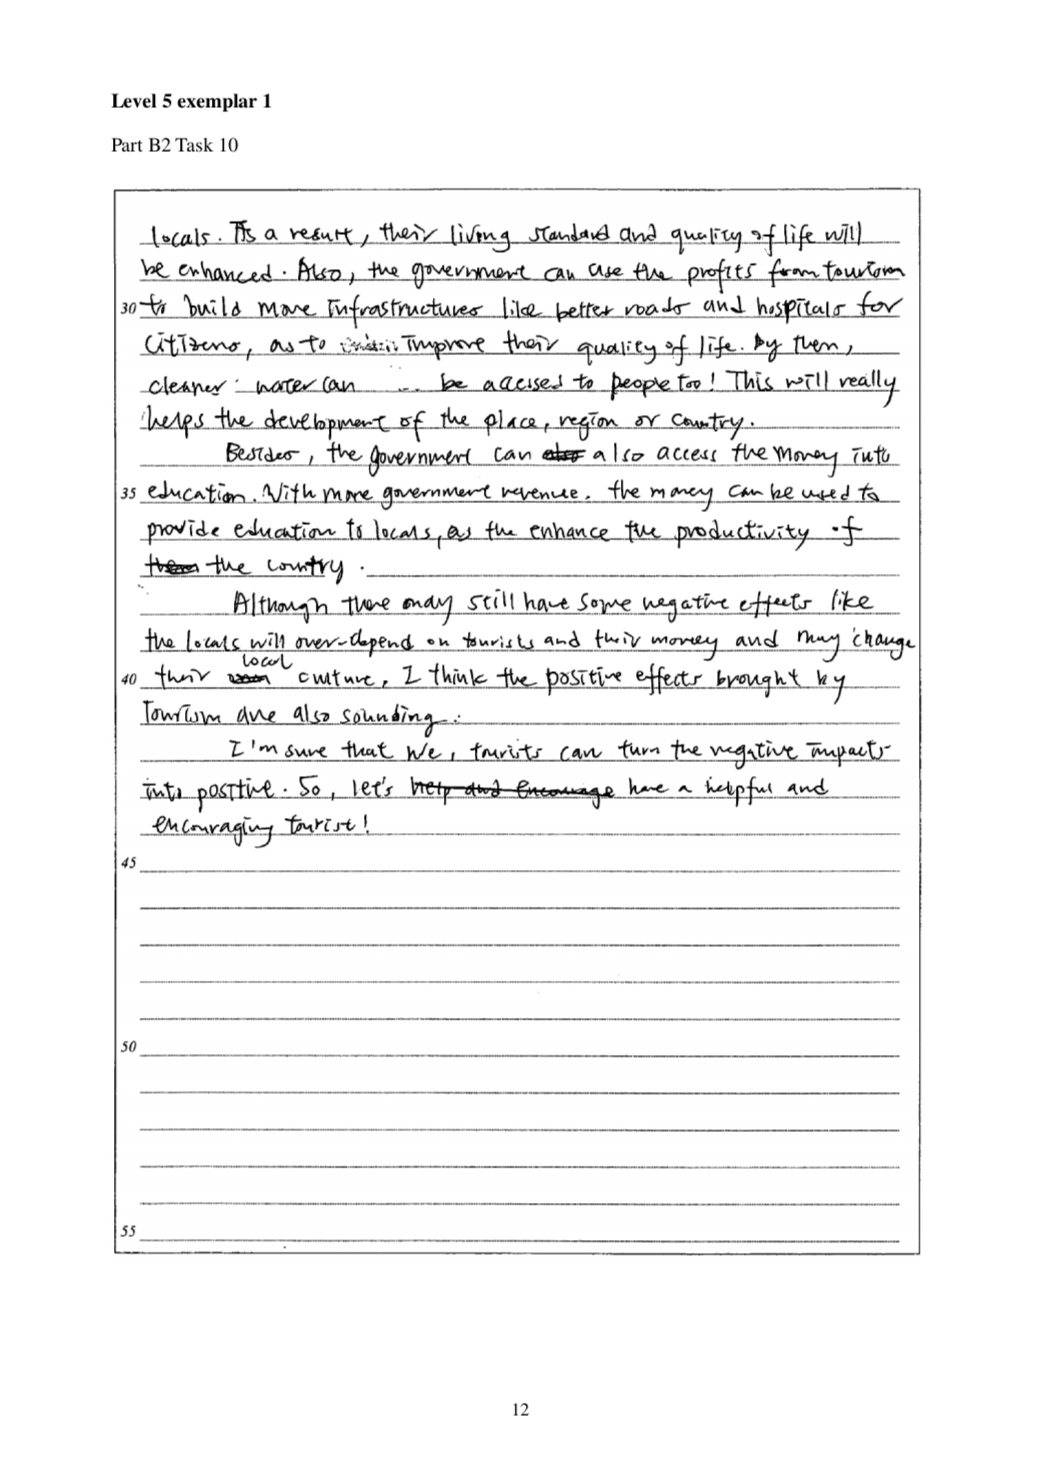 Level 5 exemplar 1
Part B2 Task 10
locals. As a result, their living standard and quality of life will
be enhanced. Also, the government can use the profits from tourism
30 to build more infrastructures like better roads and hospitals for
citizens, as to improve their quality of life. By them,
cleaner water can be accesed to people too! This will really
helps the development of the place, region or country.
Besides, the government can also also access the money into
35 education. With more government revenue, the money can be used to
provide education to locals, as the enhance the productivity of
them the country.
Although there may still have some negative effects like
the locals will over-depend on tourists and their money and may change
local
40 their culture, I think the positive effects brought by
tourism are also sounding.
I'm sure that we, tourists can turn the negative impacts
into positive. So, let's help and encourage have a helpful and
encouraging tourist!
45
50
55
12